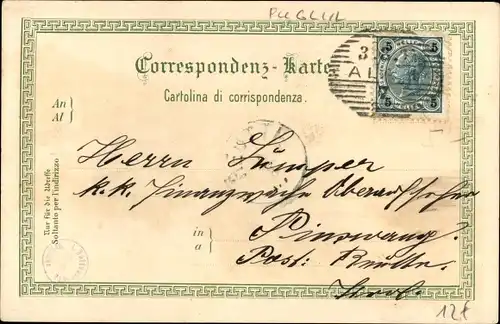 Correspondenz-Karte
Cartolina di corrispondenza.
An
Al
Nur für die Adresse
Soltanto per l'indirizzo
Herrn
k.k. Finanzwache Oberaufseher
in
a
Pinswang.
Post: Reutte
Tirol.
5 5
5 5
3
12€